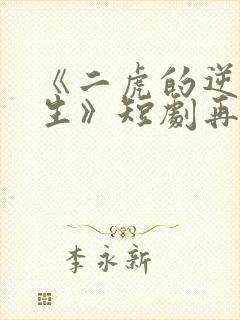 《二虎的逆
生》短劇再
李永新